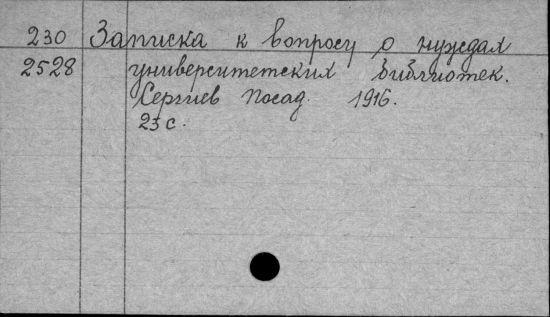 230 Записка к вопросу о нуждах
2528 университетских библиотек.
Сергиев Посад. 1916.
23 с.